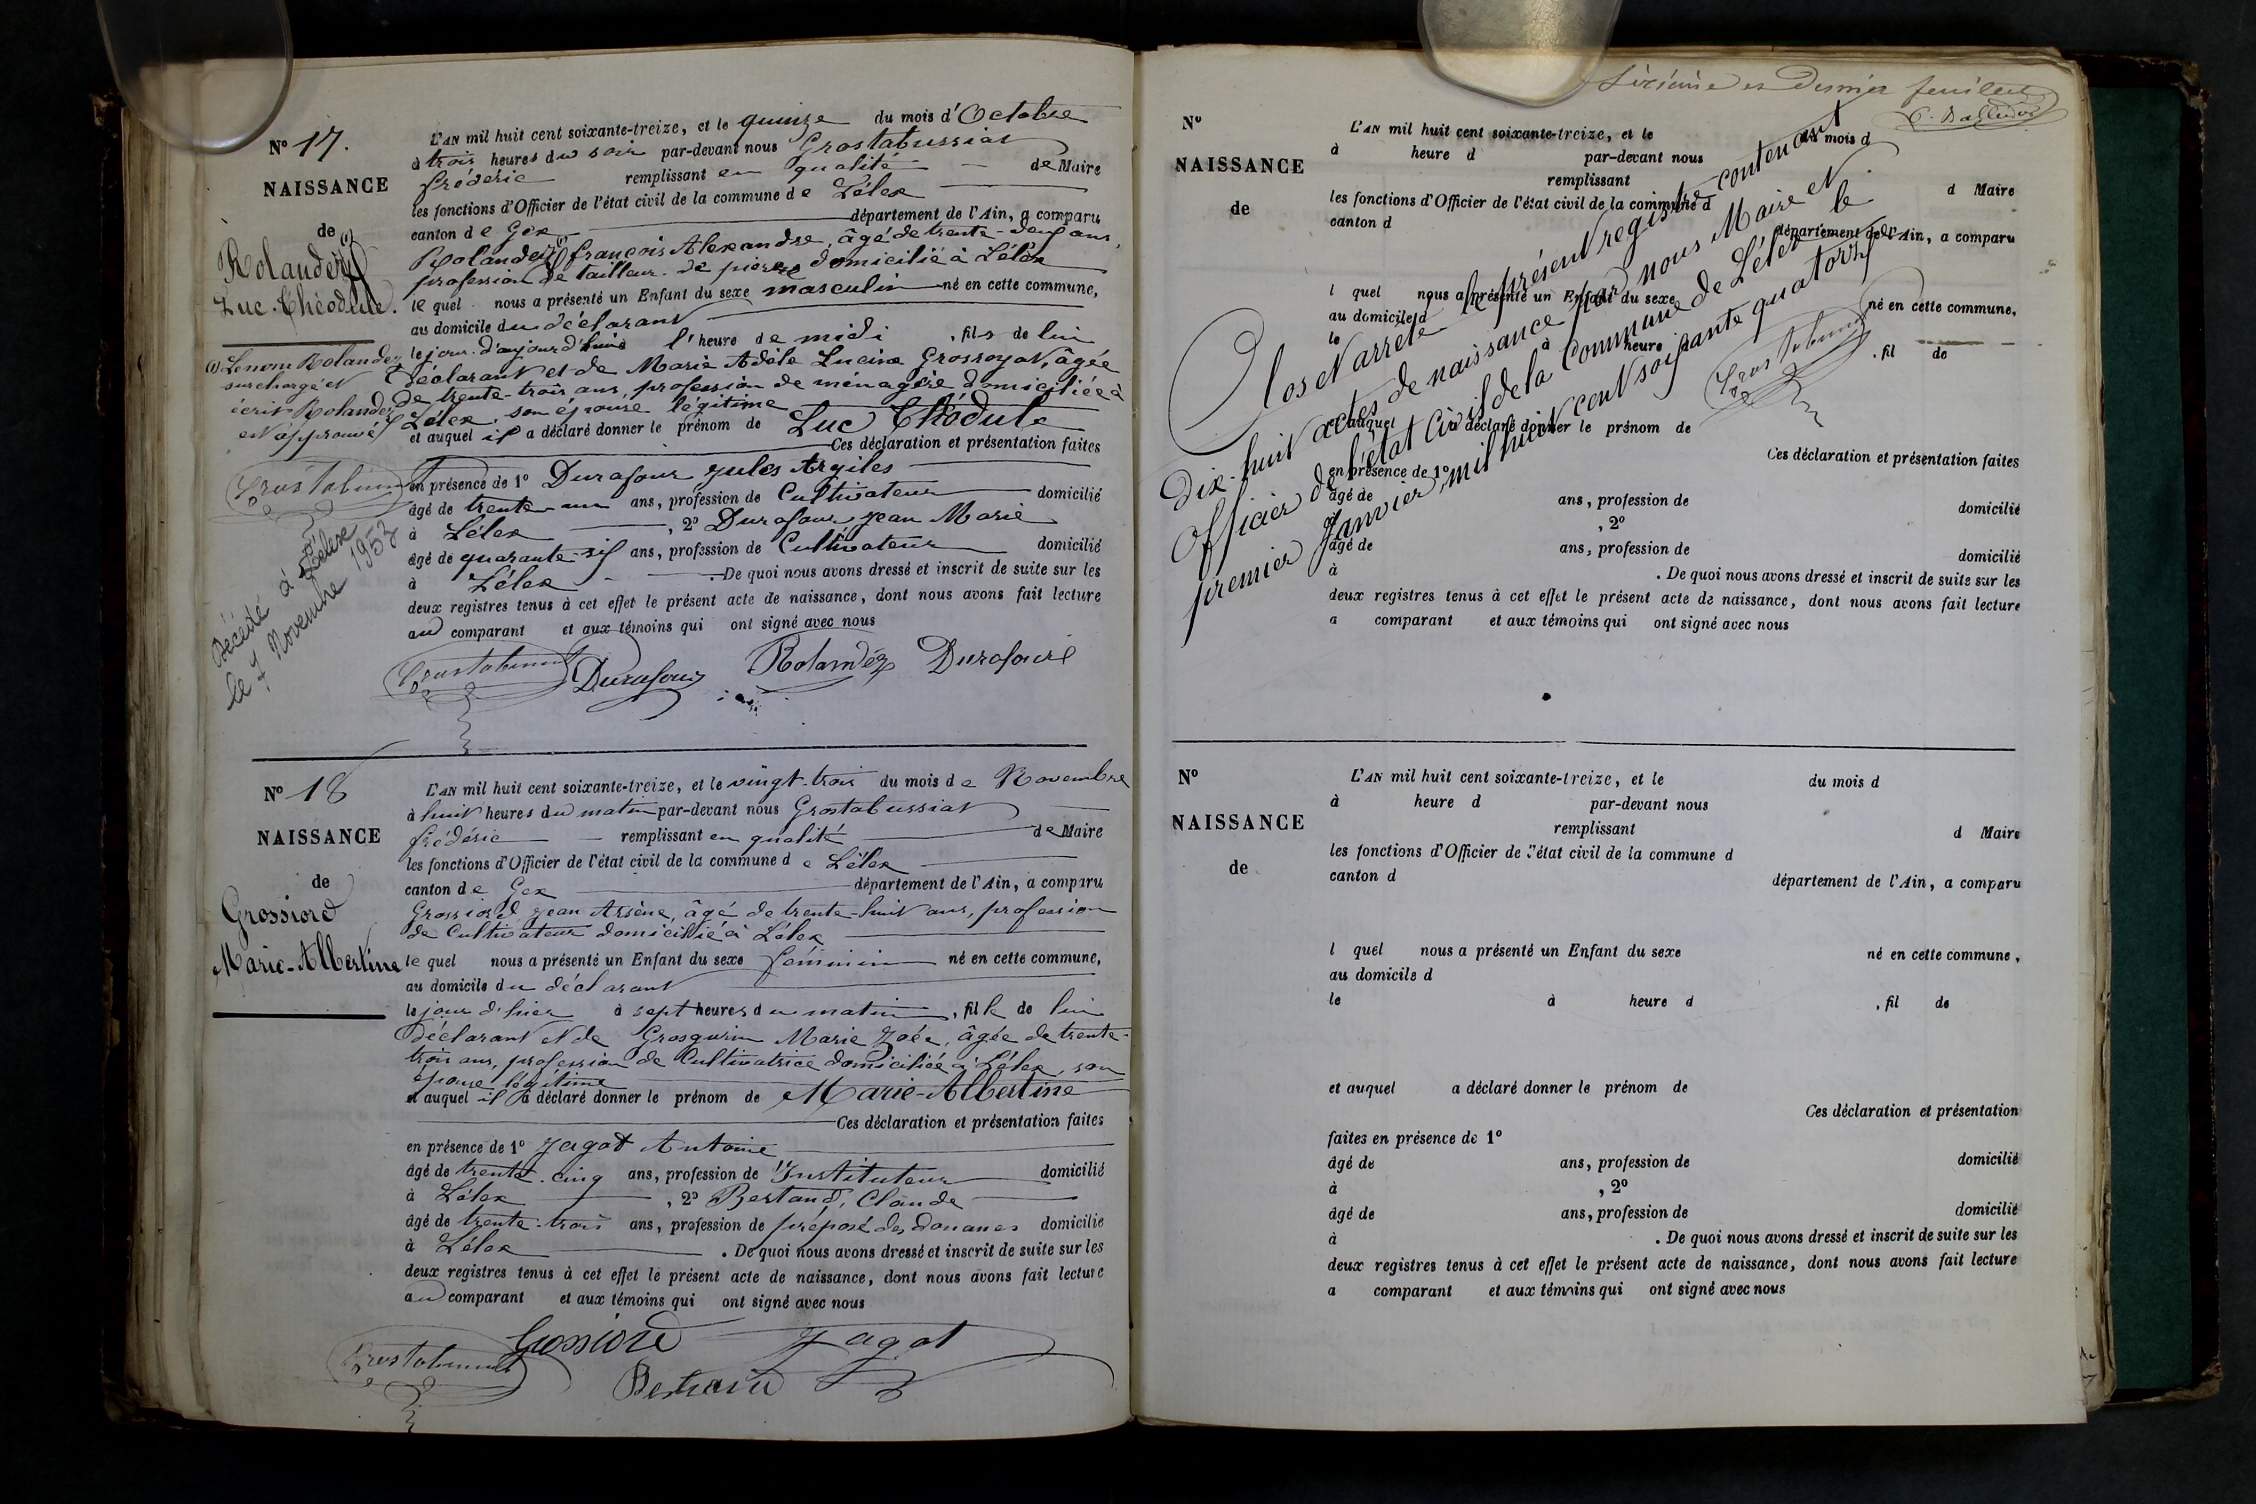 N° 17.
NAISSANCE
de
Rolandez
Luc-Théodule.
(1) Le nom Rolandez
surchargé et
écrit Rolandez
est approuvé
Décédé à Lélex
le 7 Novembre 1953
L'AN mil huit cent soixante-treize, et le quinze du mois d'Octobre
à trois heures du soir par-devant nous Grostabussiat
frédéric remplissant en qualité de Maire
les fonctions d'Officier de l'état civil de la commune de Lélex
canton de Gex département de l'Ain, a comparu
Rolandez (1) françois Alexandre, âgé de trente-neuf ans,
profession de tailleur de pierre domicilié à Lélex
lequel nous a présenté un Enfant du sexe masculin né en cette commune,
au domicile du déclarant
le jour d'aujourd'hui à l'heure de midi, fils de lui
Déclarant et de Marie Adèle Lucine Grosroyat, âgée
de trente-trois ans, profession de ménagère domiciliée à
Lélex, son épouse légitime
et auquel il a déclaré donner le prénom de Luc Théodule
Ces déclaration et présentation faites
en présence de 1° Durafour Jules Argiles
âgé de trente-un ans, profession de Cultivateur domicilié
à Lélex, 2° Durafour Jean Marie
âgé de quarante-six ans, profession de Cultivateur domicilié
à Lélex. De quoi nous avons dressé et inscrit de suite sur les
deux registres tenus à cet effet le présent acte de naissance, dont nous avons fait lecture
au comparant et aux témoins qui ont signé avec nous
Durafour Rolandez Durafour
N° 18
NAISSANCE
de
Grossiord
Marie-Albertine
L'AN mil huit cent soixante-treize, et le vingt-trois du mois de Novembre
à huit heures du matin par-devant nous Grostabussiat
frédéric remplissant en qualité de Maire
les fonctions d'Officier de l'état civil de la commune de Lélex
canton de Gex département de l'Ain, a comparu
Grossiord Jean Arsène, âgé de trente-huit ans, profession
de Cultivateur domicilié à Lélex
lequel nous a présenté un Enfant du sexe féminin né en cette commune,
au domicile du déclarant
le jour d'hier à sept heures du matin, fille de lui
Déclarant et de Grosgurin Marie Zoée, âgée de trente-
trois ans, profession de Cultivatrice domiciliée à Lélex, son
épouse légitime
et auquel il a déclaré donner le prénom de Marie-Albertine
Ces déclaration et présentation faites
en présence de 1° Jagot Antoine
âgé de trente-cinq ans, profession de Instituteur domicilié
à Lélex, 2° Bertand, Claude
âgé de trente-trois ans, profession de préposé des douanes domicilié
à Lélex. De quoi nous avons dressé et inscrit de suite sur les
deux registres tenus à cet effet le présent acte de naissance, dont nous avons fait lecture
au comparant et aux témoins qui ont signé avec nous
Grossiord Jagot
Bertrand
et dernier feuillet
N°
NAISSANCE
de
L'AN mil huit cent soixante-treize, et le du mois d
à heure d par-devant nous
remplissant d Maire
les fonctions d'Officier de l'état civil de la commune d
canton d département de l'Ain, a comparu
l quel nous a présenté un Enfant du sexe né en cette commune,
au domicile d
le à heure d, fil de
et auquel a déclaré donner le prénom de
Ces déclaration et présentation faites
en présence de 1°
âgé de ans, profession de domicilié
à, 2°
âgé de ans, profession de domicilié
à. De quoi nous avons dressé et inscrit de suite sur les
deux registres tenus à cet effet le présent acte de naissance, dont nous avons fait lecture
a comparant et aux témoins qui ont signé avec nous
Clos et arrêté le présent registre contenant
dix-huit actes de naissance par nous Maire et
Officier de l'état civil de la Commune de Lélex le
premier Janvier, mil huit cent soixante quatorze
N°
NAISSANCE
de
L'AN mil huit cent soixante-treize, et le du mois d
à heure d par-devant nous
remplissant d Maire
les fonctions d'Officier de l'état civil de la commune d
canton d département de l'Ain, a comparu
l quel nous a présenté un Enfant du sexe né en cette commune,
au domicile d
le à heure d, fil de
et auquel a déclaré donner le prénom de
Ces déclaration et présentation
faites en présence de 1°
âgé de ans, profession de domicilié
à, 2°
âgé de ans, profession de domicilié
à. De quoi nous avons dressé et inscrit de suite sur les
deux registres tenus à cet effet le présent acte de naissance, dont nous avons fait lecture
a comparant et aux témoins qui ont signé avec nous